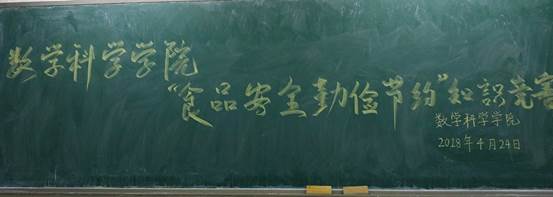 数学科学学院
“食品安全勤俭节约”知识竞赛
数学科学学院
2018年4月24日